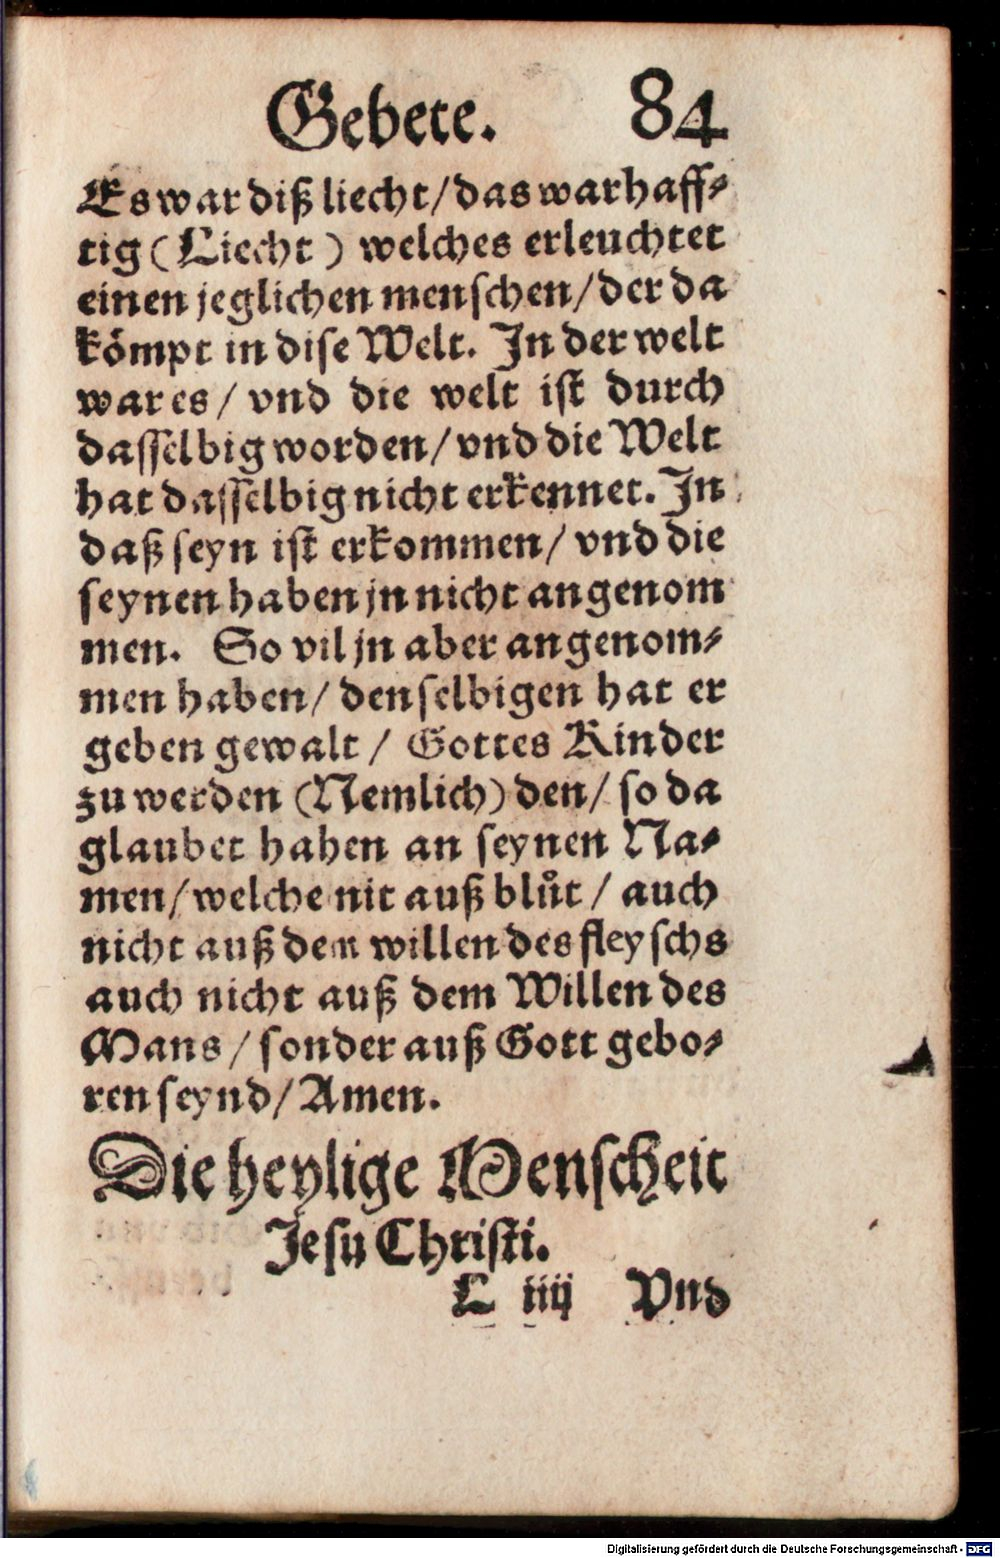 Gebete. 84
Es war diß liecht/das warhaff⸗
tig (Liecht) welches erleuchtet
einen jeglichen menschen/der da
kömpt in dise Welt. In der welt
war es/ vnd die welt ist durch
dasselbig worden/vnd die Welt
hat dasselbig nicht erkennet. In
daß seyn ist er kommen/ vnd die
seynen haben jn nicht angenom
men. So vil jn aber angenom⸗
men haben/ denselbigen hat er
geben gewalt/ Gottes Kinder
zu werden (Nemlich) den/ so da
glaubet hahen an seynen Na⸗
men/welche nit auß blůt/ auch
nicht auß dem willen des fleyschs
auch nicht auß dem Willen des
Mans/ sonder auß Gott gebo⸗
ren seynd/ Amen.
Die heylige Menscheit
Jesu Christi.
L iiij Vnd
Digitalisierung gefördert durch die Deutsche Forschungsgemeinschaft - DFG